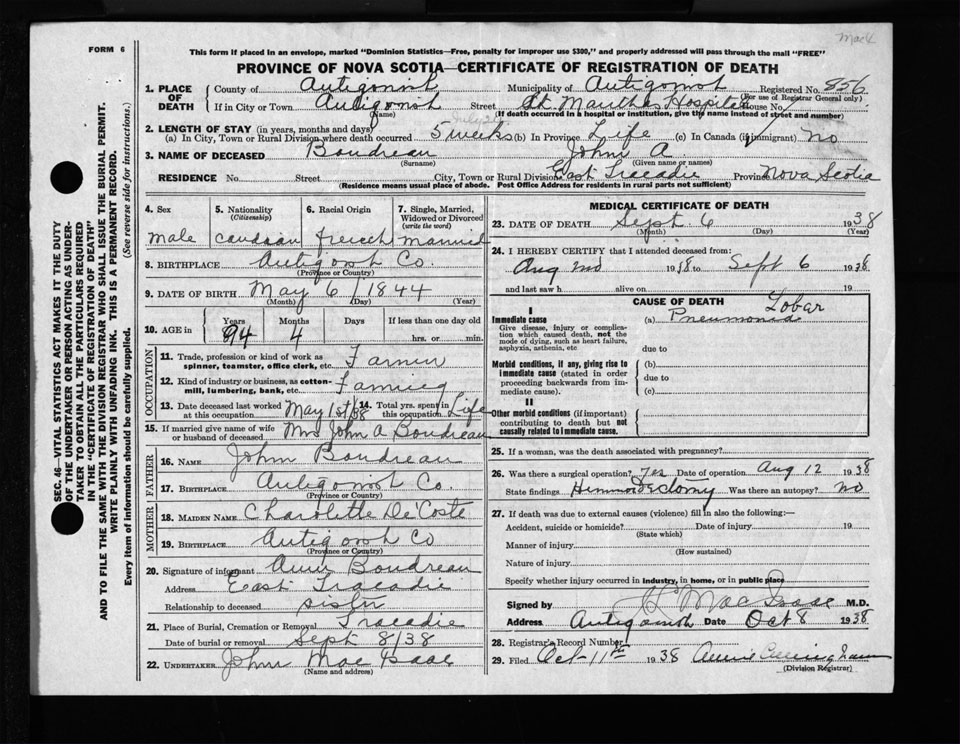 Mack
FORM 6
This form if placed in an envelope, marked "Dominion Statistics—Free, penalty for improper use $300," and properly addressed will pass through the mail "FREE"
PROVINCE OF NOVA SCOTIA—CERTIFICATE OF REGISTRATION OF DEATH
1. PLACE OF DEATH
County of Antigonish Municipality of Antigonish Registered No. 856
(For use of Registrar General only)
If in City or Town Antigonish Street St. Martha's Hospital House No.
(Name) (If death occurred in a hospital or institution, give the name instead of street and number)
2. LENGTH OF STAY (in years, months and days)
(a) In City, Town or Rural Division where death occurred 5 weeks (b) In Province Life (c) In Canada (if immigrant) no
3. NAME OF DECEASED Boudreau John A
(Surname) (Given name or names)
RESIDENCE No. Street City, Town or Rural Division East Tracadie Province Nova Scotia
(Residence means usual place of abode. Post Office Address for residents in rural parts not sufficient)
SEC. 46—VITAL STATISTICS ACT MAKES IT THE DUTY
OF THE UNDERTAKER OR PERSON ACTING AS UNDER-
TAKER TO OBTAIN ALL THE PARTICULARS REQUIRED
IN THE "CERTIFICATE OF REGISTRATION OF DEATH"
AND TO FILE THE SAME WITH THE DIVISION REGISTRAR WHO SHALL ISSUE THE BURIAL PERMIT.
WRITE PLAINLY WITH UNFADING INK. THIS IS A PERMANENT RECORD.
Every item of information should be carefully supplied. (See reverse side for instructions.)
4. Sex 5. Nationality 6. Racial Origin 7. Single, Married,
(Citizenship) Widowed or Divorced
(write the word)
male canadian french married
8. BIRTHPLACE Antigonish Co.
(Province or Country)
9. DATE OF BIRTH May 6 / 1844
(Month) (Day) (Year)
10. AGE in Years Months Days If less than one day old
94 4 hrs. or min.
OCCUPATION
11. Trade, profession or kind of work as
spinner, teamster, office clerk, etc. Farmer
12. Kind of industry or business, as cotton-
mill, lumbering, bank, etc. Farming
13. Date deceased last worked at this occupation May 1st/38 14. Total yrs. spent in this occupation Life
15. If married give name of wife
or husband of deceased Mrs John A Boudreau
FATHER
16. NAME John Boudreau
17. BIRTHPLACE Antigonish Co.
(Province or Country)
MOTHER
18. MAIDEN NAME Charolette De'Coste
19. BIRTHPLACE Antigonish Co
(Province or Country)
20. Signature of informant Boudreau
Address East Tracadie
Relationship to deceased sister
21. Place of Burial, Cremation or Removal Tracadie
Date of burial or removal Sept 8/38
22. UNDERTAKER John Mac Isaac
(Name and address)
MEDICAL CERTIFICATE OF DEATH
23. DATE OF DEATH Sept. 6 1938
(Month) (Day) (Year)
24. I HEREBY CERTIFY that I attended deceased from:
Aug 1938 to Sept 6 1938
and last saw h alive on 19
CAUSE OF DEATH
I
Immediate cause (a) Lobar Pneumonia
Give disease, injury or complica-
tion which caused death, not the
mode of dying, such as heart failure,
asphyxia, asthenia, etc
due to
Morbid conditions, if any, giving rise to (b)
immediate cause (stated in order due to
proceeding backwards from im-
mediate cause). (c)
II
Other morbid conditions (if important)
contributing to death but not
causally related to immediate cause.
25. If a woman, was the death associated with pregnancy?
26. Was there a surgical operation? yes Date of operation Aug 12 1938
State findings Was there an autopsy? no
27. If death was due to external causes (violence) fill in also the following:—
Accident, suicide or homicide? Date of injury 19
(State which)
Manner of injury
(How sustained)
Nature of injury
Specify whether injury occurred in industry, in home, or in public place
Signed by Mac Isaac M.D.
Address Antigonish Date Oct 8 1938
28. Registrar's Record Number
29. Filed Oct 11th 1938 Annie
(Division Registrar)